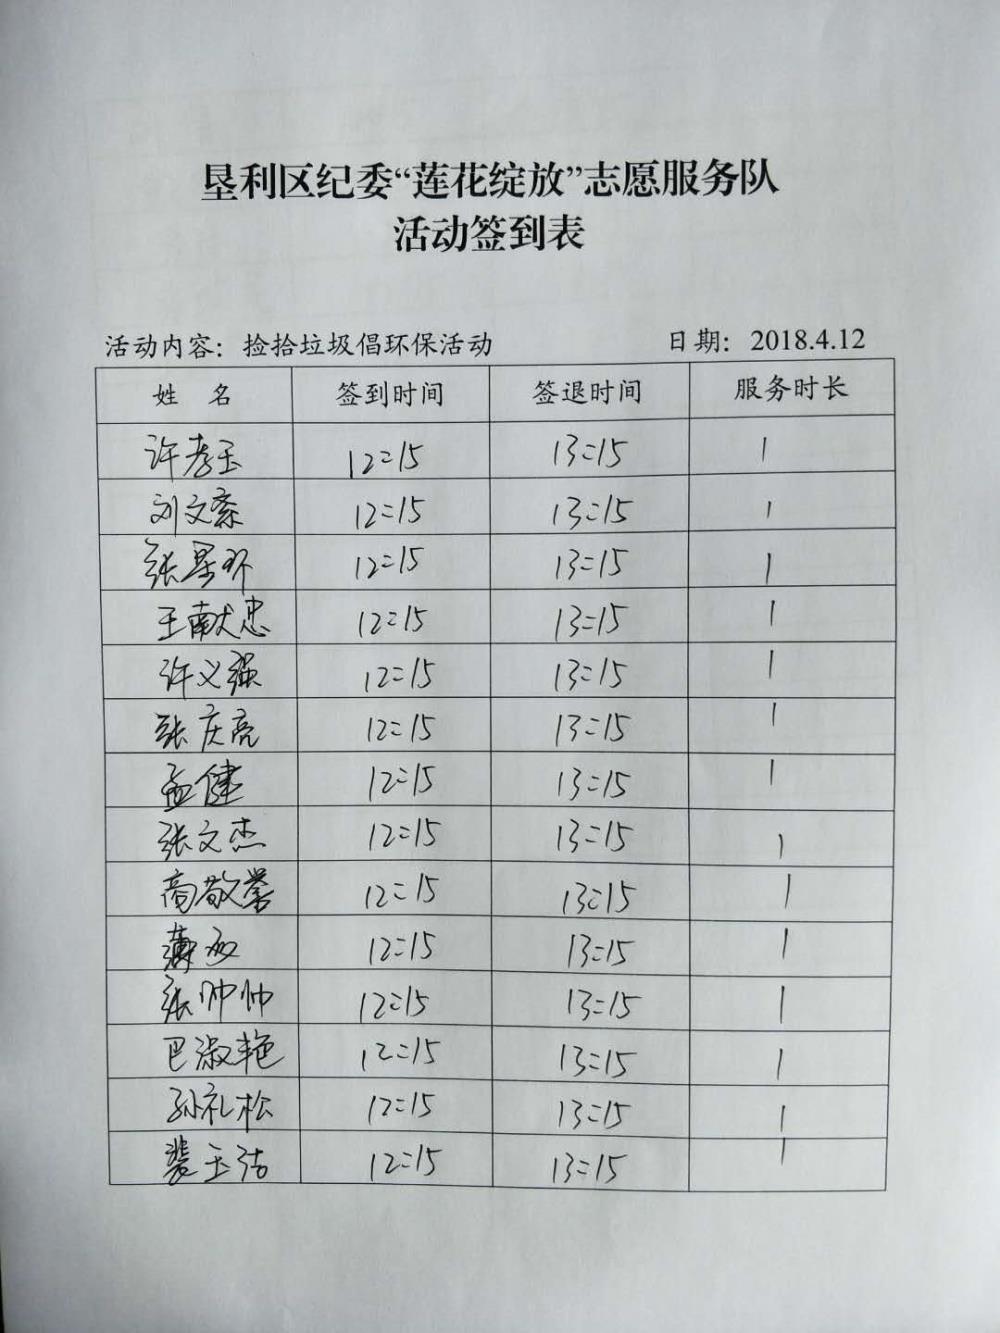 垦利区纪委“莲花绽放”志愿服务队
活动签到表
活动内容：捡拾垃圾倡环保活动 日期：2018.4.12
姓 名 签到时间 签退时间 服务时长
许孝玉 12:15 13:15 1
刘文斋 12:15 13:15 1
张星环 12:15 13:15 1
王献忠 12:15 13:15 1
许义强 12:15 13:15 1
张庆亮 12:15 13:15 1
孟健 12:15 13:15 1
张文杰 12:15 13:15 1
商敬誉 12:15 13:15 1
12:15 13:15 1
张帅帅 12:15 13:15 1
巴淑艳 12:15 13:15 1
孙礼松 12:15 13:15 1
裴玉洁 12:15 13:15 1